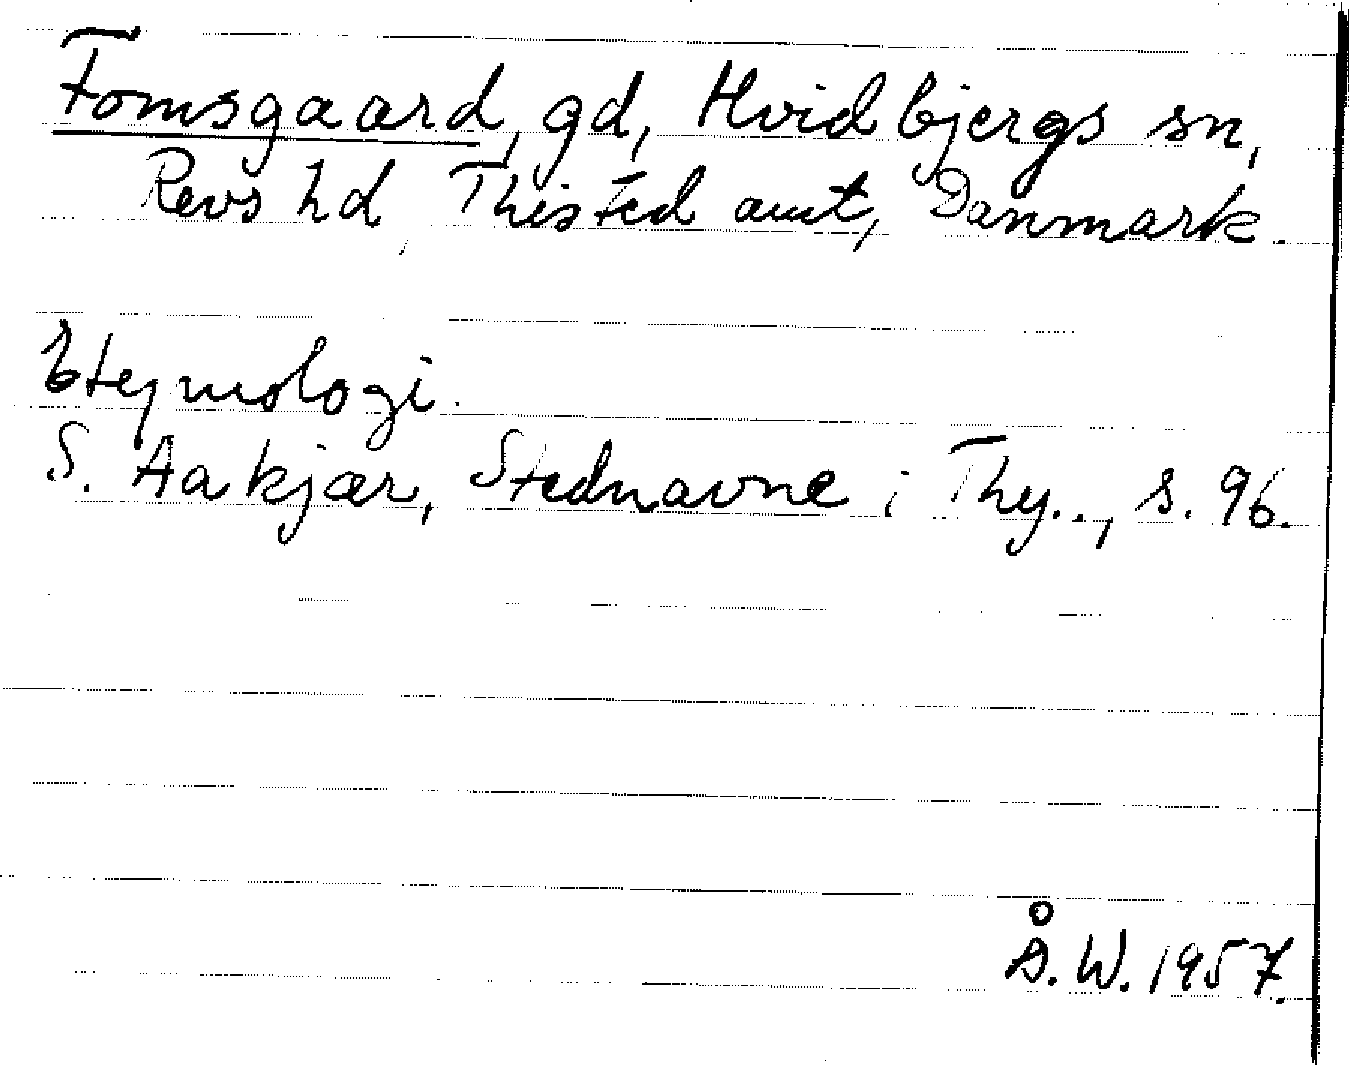 Fomsgaard, gd, Hvidbjergs sn,
Revs hd, Thisted amt, Danmark.
Etymologi.
S. Aakjær, Stednavne i Thy.., s. 96.
Å.W. 1957.